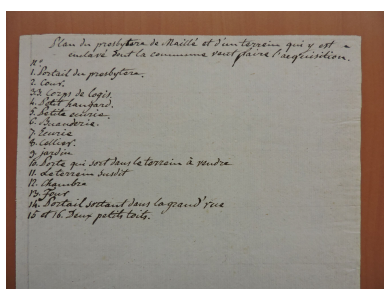 Plan du presbytère de Maillé et d'un terrein qui y est
enclavé dont la commune veut faire l'acquisition.
Nos
1. Portail du presbytère.
2. Cour.
3. Corps de logis.
4. Petit hangard.
5. Petite écurie.
6. Buanderie.
7. Écurie
8. Cellier.
9. jardin
10. Porte qui sort dans le terrein à vendre
11. Le terrein susdit
12. Chambre
13. Four
14. Portail sortant dans la grand'rue
15 et 16. Deux petits toits.